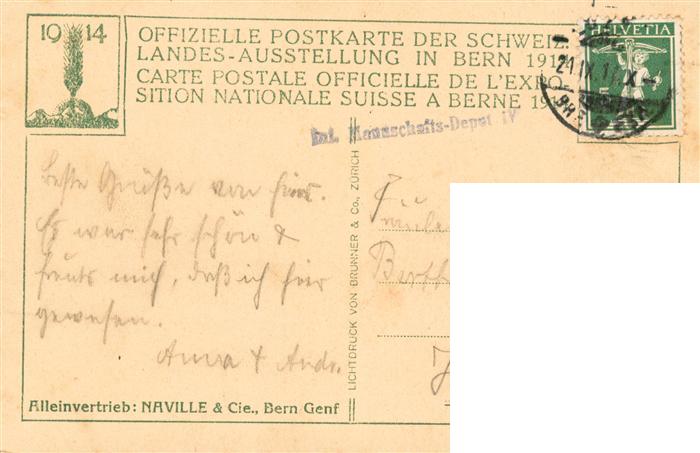 19 14
OFFIZIELLE POSTKARTE DER SCHWEIZ.
LANDES-AUSSTELLUNG IN BERN 191
CARTE POSTALE OFFICIELLE DE L'EXPO
SITION NATIONALE SUISSE A BERNE 19
HELVETIA
5
21 IX 1
Mannschafts-Depot IV
Beste Grüße von hier.
Es war sehr schön &
freuts mich, daß ich hier
gewesen.
Anna & Andr.
LICHTDRUCK VON BRUNNER & Co., ZÜRICH
Alleinvertrieb: NAVILLE & Cie., Bern Genf